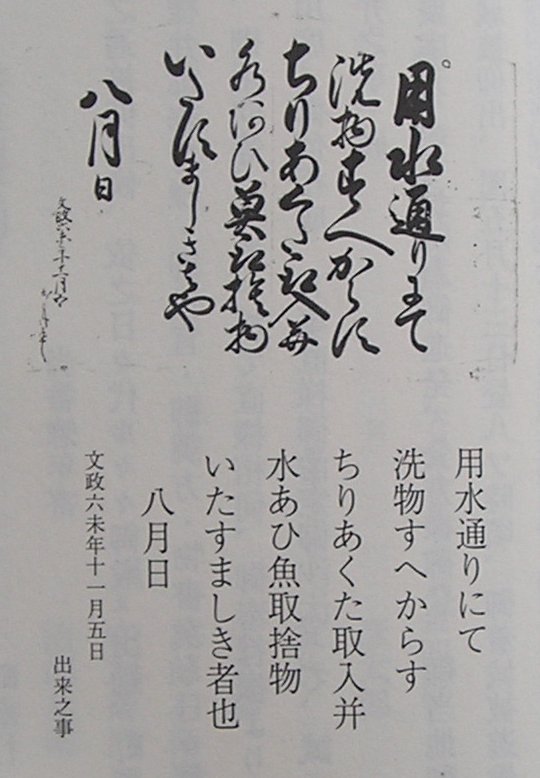 用水通りにて
洗物すへからす
ちりあくた取入并
水あひ魚取捨物
いたすましき者也
八月日
文政六未年十一月五日
出来之事
用水通りにて
洗物すへからす
ちりあくた取入并
水あひ魚取捨物
いたすましき者也
八月日
文政六未年十一月五日
出来之事